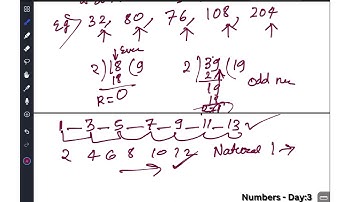 Eg 32, 80, 76, 108, 204
Even
2) 18 (9
18
R=0
2) 39 (19
2
19
18
odd no
1-3-5-7-9-11-13
2 4 6 8 10 12 Natural 1 →
Numbers - Day:3